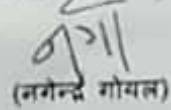 (नगेन्द्र गोयल)